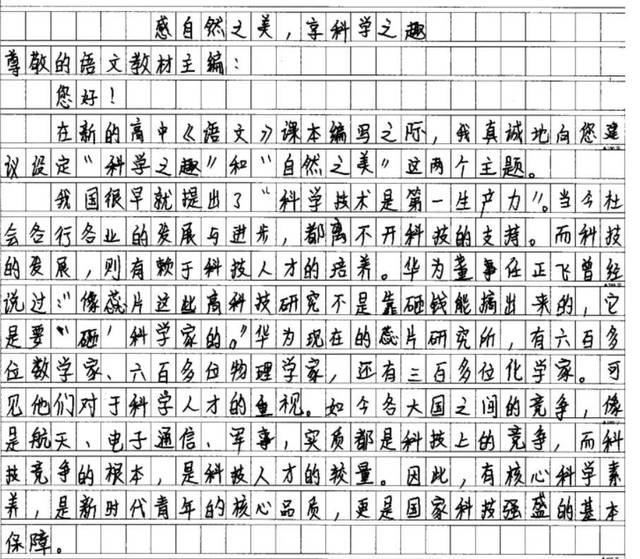 感自然之美，享科学之趣
尊敬的语文教材主编：
您好！
在新的高中《语文》课本编写之际，我真诚地向您建
议设定“科学之趣”和“自然之美”这两个主题。
我国很早就提出了“科学技术是第一生产力”。当今社
会各行各业的发展与进步，都离不开科技的支持。而科技
的发展，则有赖于科技人才的培养。华为董事任正飞曾经
说过：“像蕊片这些高科技研究不是靠砸钱能搞出来的，它
是要‘砸’科学家的。”华为现在的蕊片研究所，有六百多
位数学家、六百多位物理学家，还有三百多位化学家。可
见他们对于科学人才的重视。如今各大国之间的竞争，像
是航天、电子通信、军事，实质都是科技上的竞争，而科
技竞争的根本，是科技人才的较量。因此，有核心科学素
养，是新时代青年的核心品质，更是国家科技强盛的基本
保障。